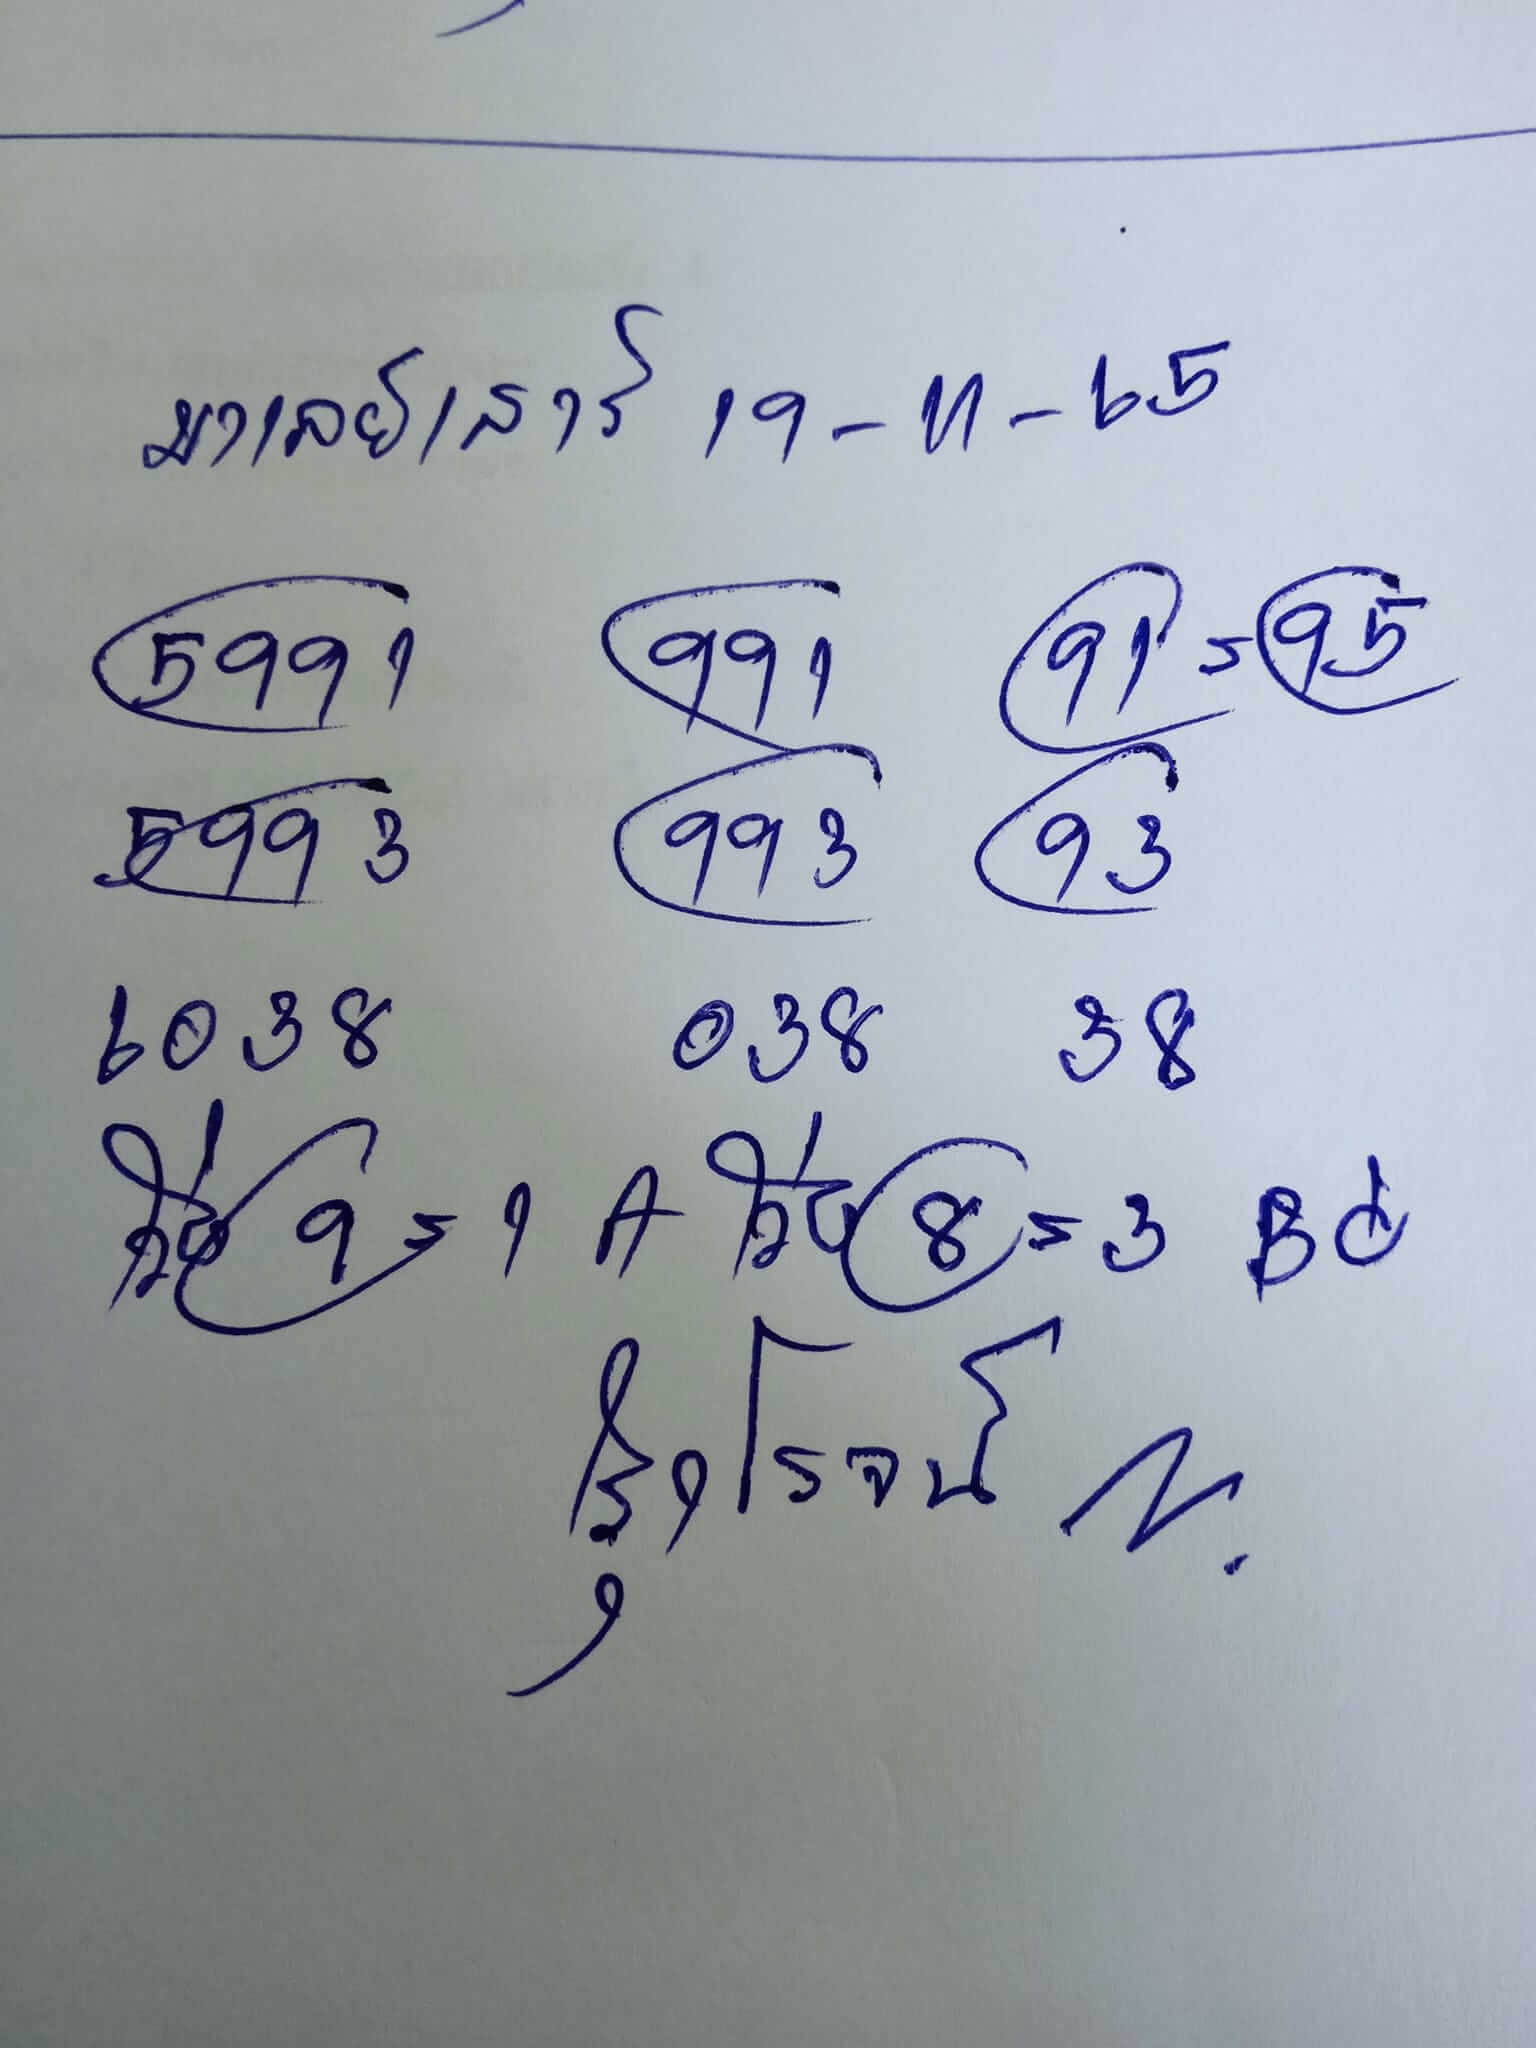 มาเลย์เสาร์ 19-11-65
5991 991 91=95
5993 993 93
6038 038 38
9=1 A 8=3 B
โรจน์ N.